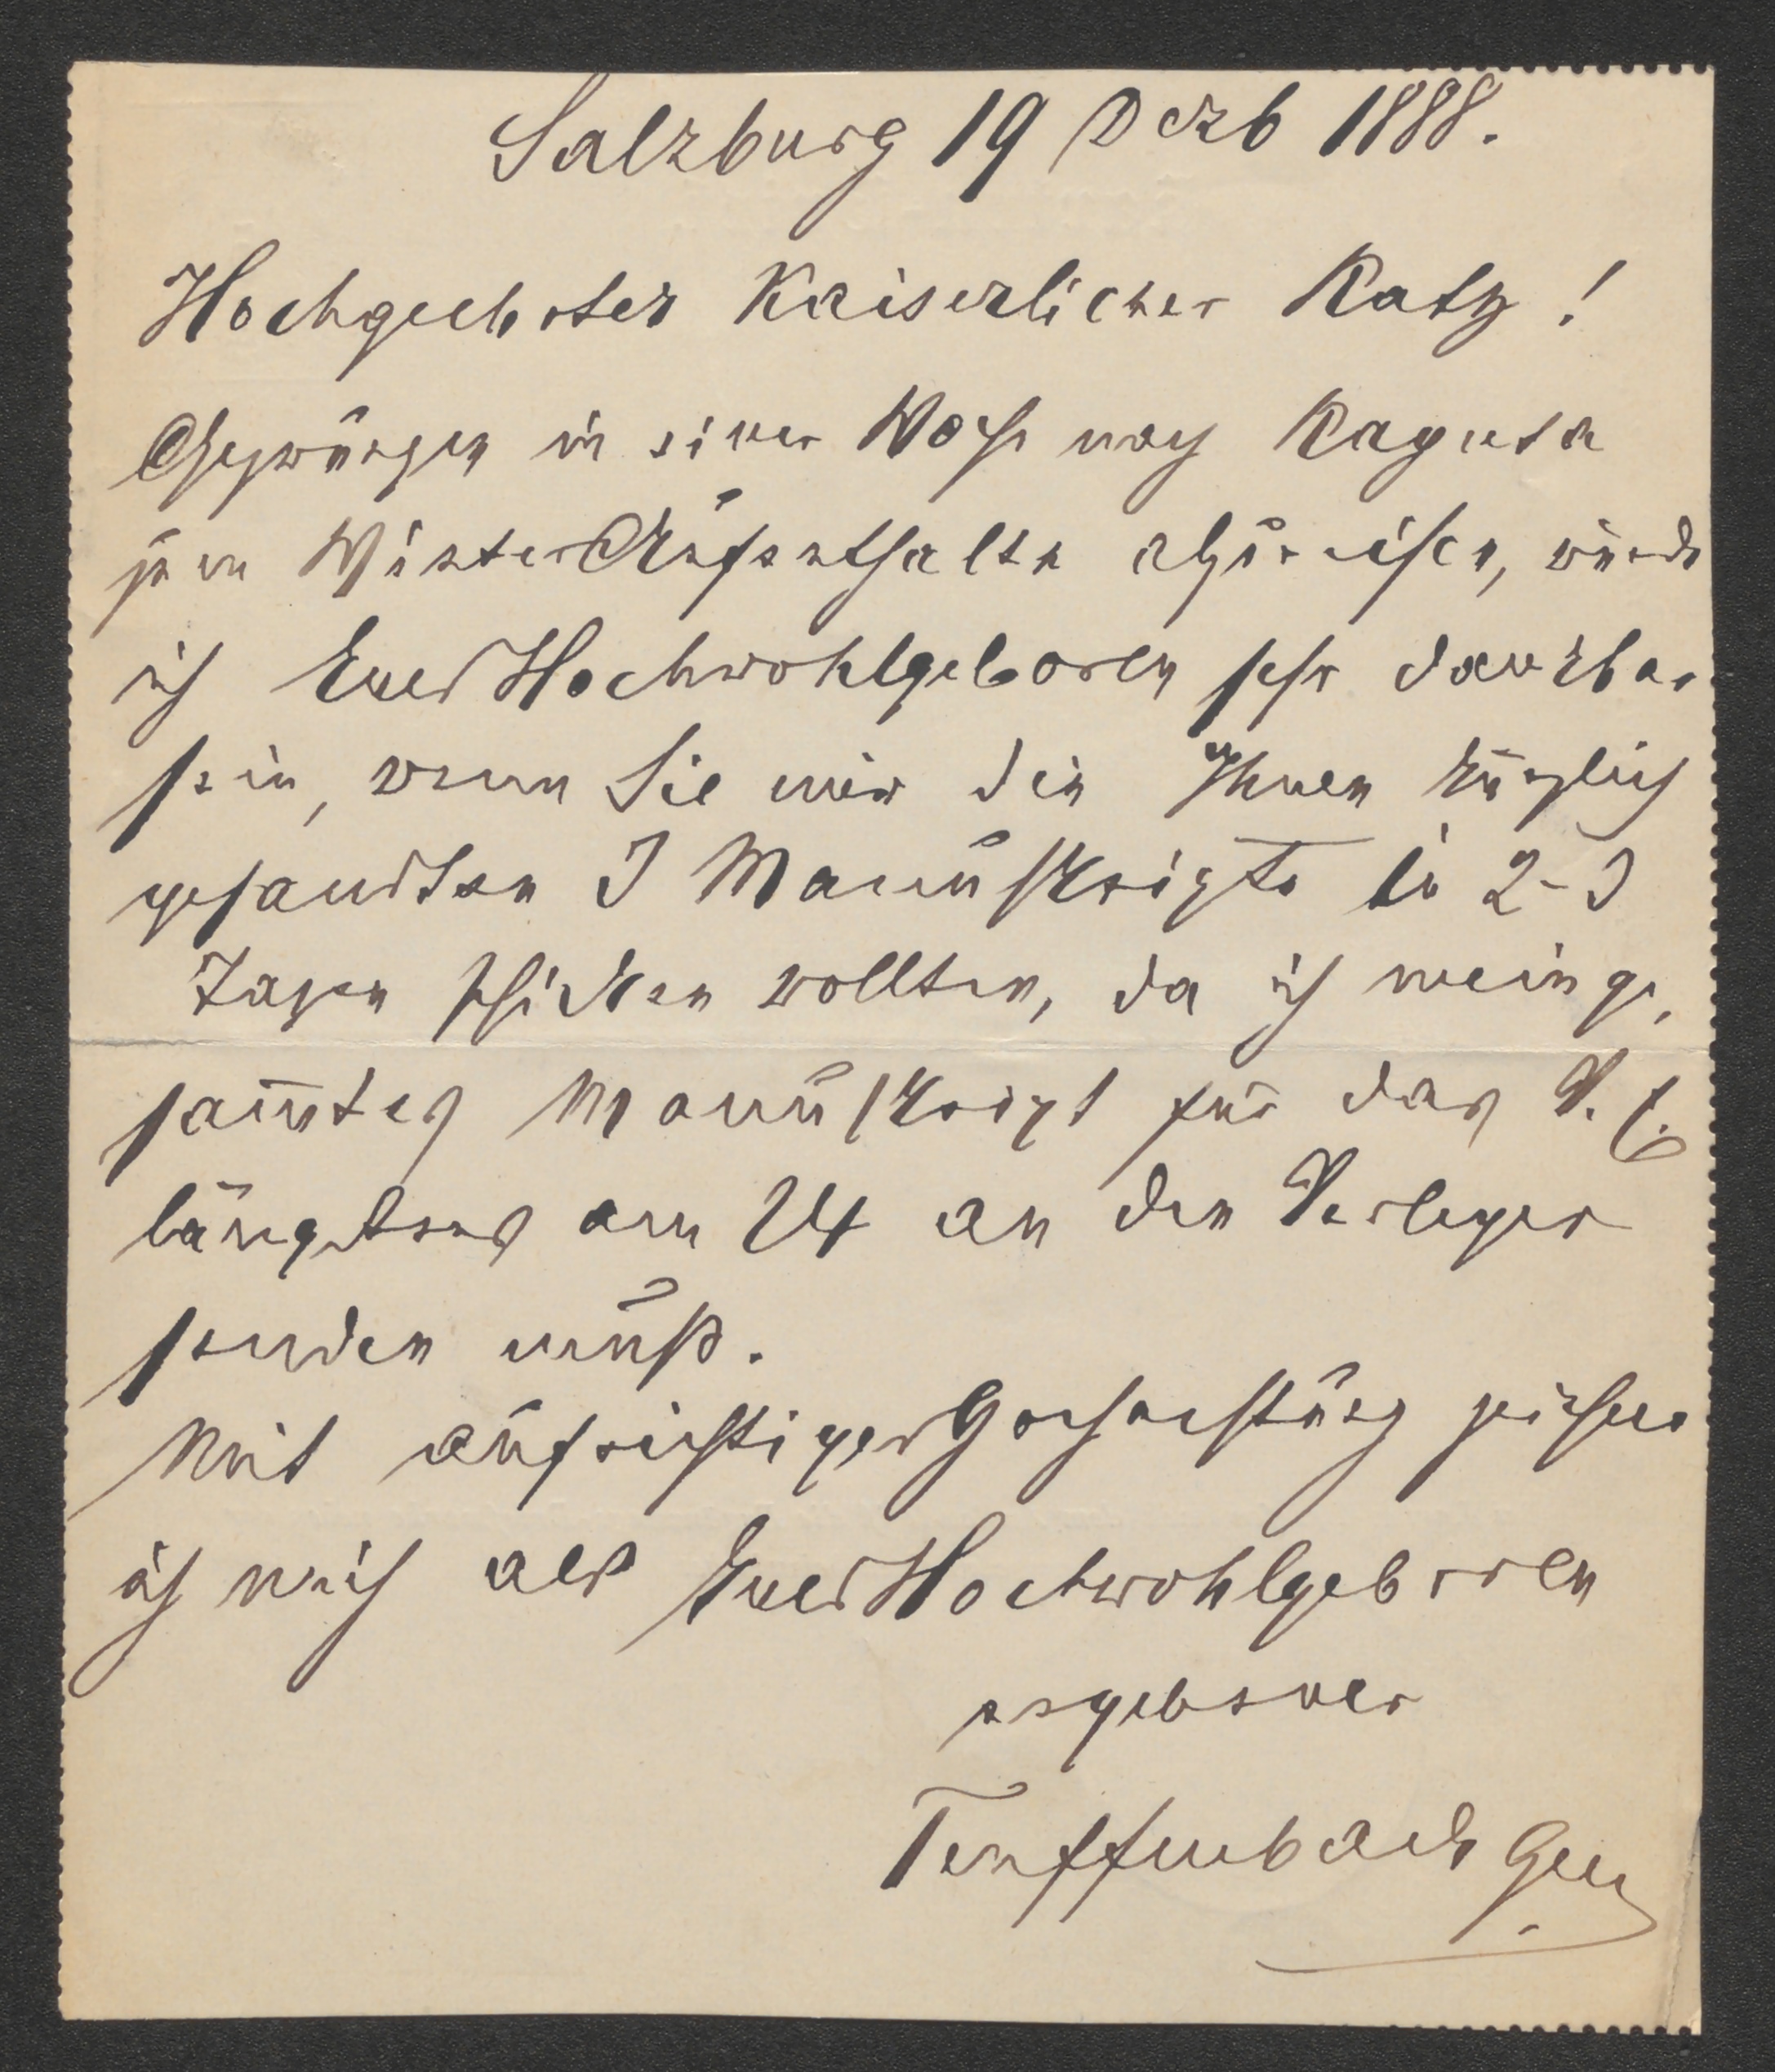 Salzburg 19 Dezb 1888.
Hochgeehrter Kaiserlicher Rath!
Gezwungen in einer Woche nach Ragusa
zum WinterAufenthalte abzureisen, würde
ich Euer Hochwohlgeboren sehr dankbar
sein, wenn Sie mir die Ihnen kürzlich
gesandten 3 Manuskripte in 2-3
Tagen schicken wollten, da ich mein ge,
sam̅tes Manuskript für das V. E.
längstens am 24 an den Verleger
senden muß.
Mit aufrichtiger Hochachtung zeichne
ich mich als Euer Hochwohlgeboren
ergebener
Teuffenbach